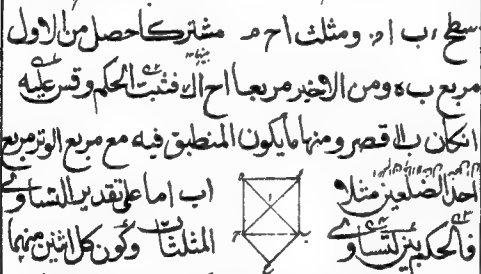 سطح ب ا ومثلث ا ح م مشتركا حصل من الاول
مربع ب ه ومن الاخير مربعا ا ح فثبت الحكم وقس عليه
انكان ب ا اقصر ومنها ما يكون المنطبق فيه مع مربع الوتر مربع
احد الضلعين مثلا ا ب اما على تقدير التساوى
فالحكم بين لتساوى المثلثات وكون كل اثنين منهما